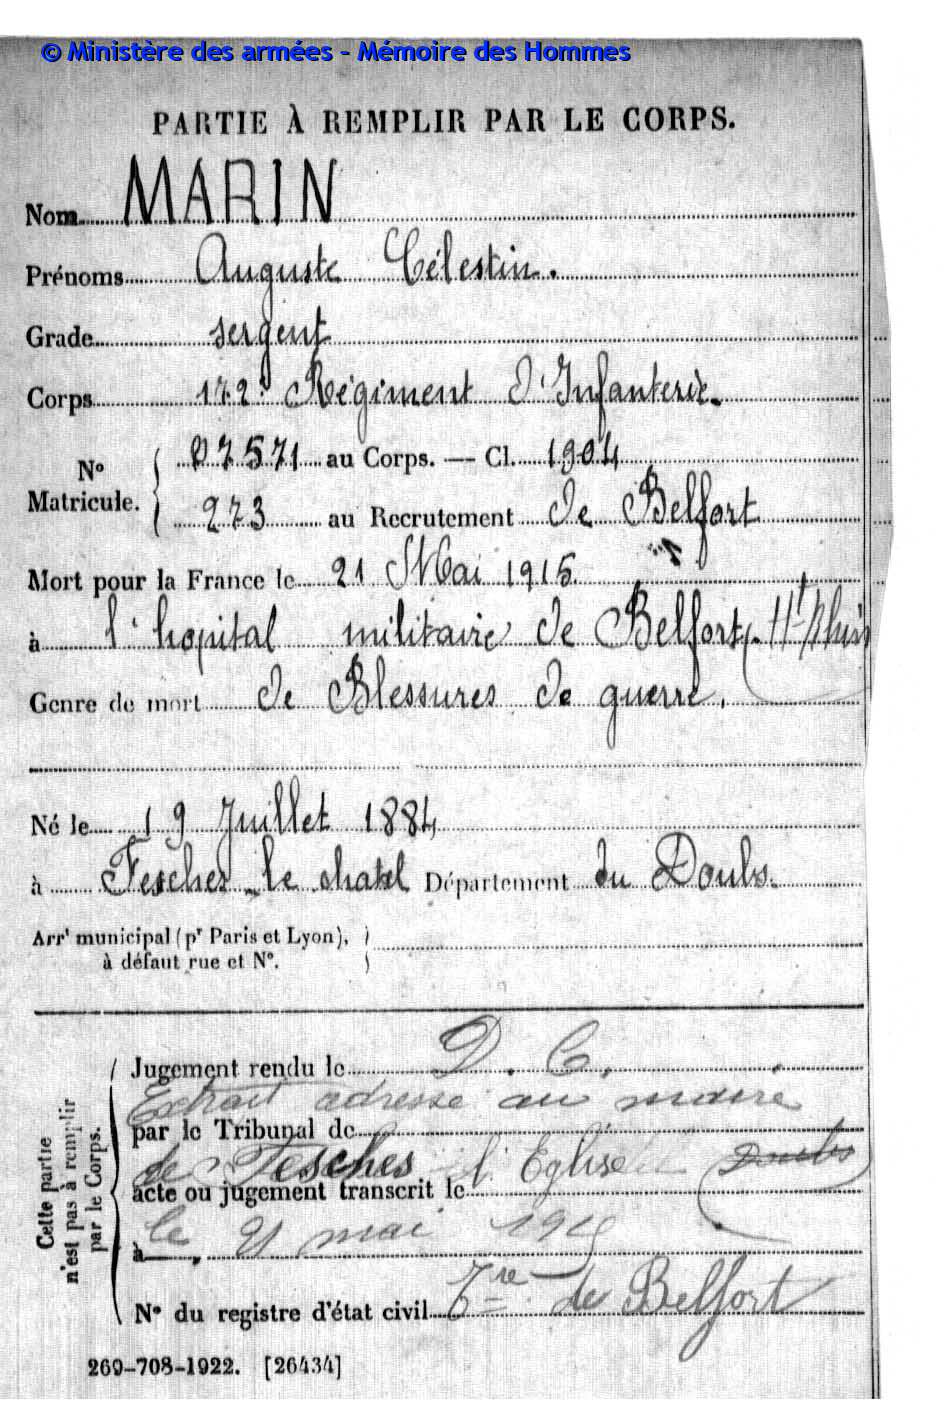 © Ministère des armées - Mémoire des Hommes
PARTIE À REMPLIR PAR LE CORPS.
Nom MARIN
Prénoms Auguste Célestin.
Grade sergent
Corps 172e Régiment d'Infanterie.
N° Matricule. 07571 au Corps. — Cl. 1904
273 au Recrutement de Belfort
Mort pour la France le 21 Mai 1915
à l'hopital militaire de Belfort (Ht Rhin)
Genre de mort de Blessures de guerre.
Né le 19 Juillet 1884
à Fesches-le chatel Département du Doubs.
Arrt municipal (pr Paris et Lyon),
à défaut rue et N°.
Cette partie
n'est pas à remplir
par le Corps.
Jugement rendu le D. C.
Extrait adresse au maire
par le Tribunal de
de Fesches l'Eglise (Doubs)
acte ou jugement transcrit le
le 21 mai 1915
à
N° du registre d'état civil Tre de Belfort
269-708-1922. [26434]